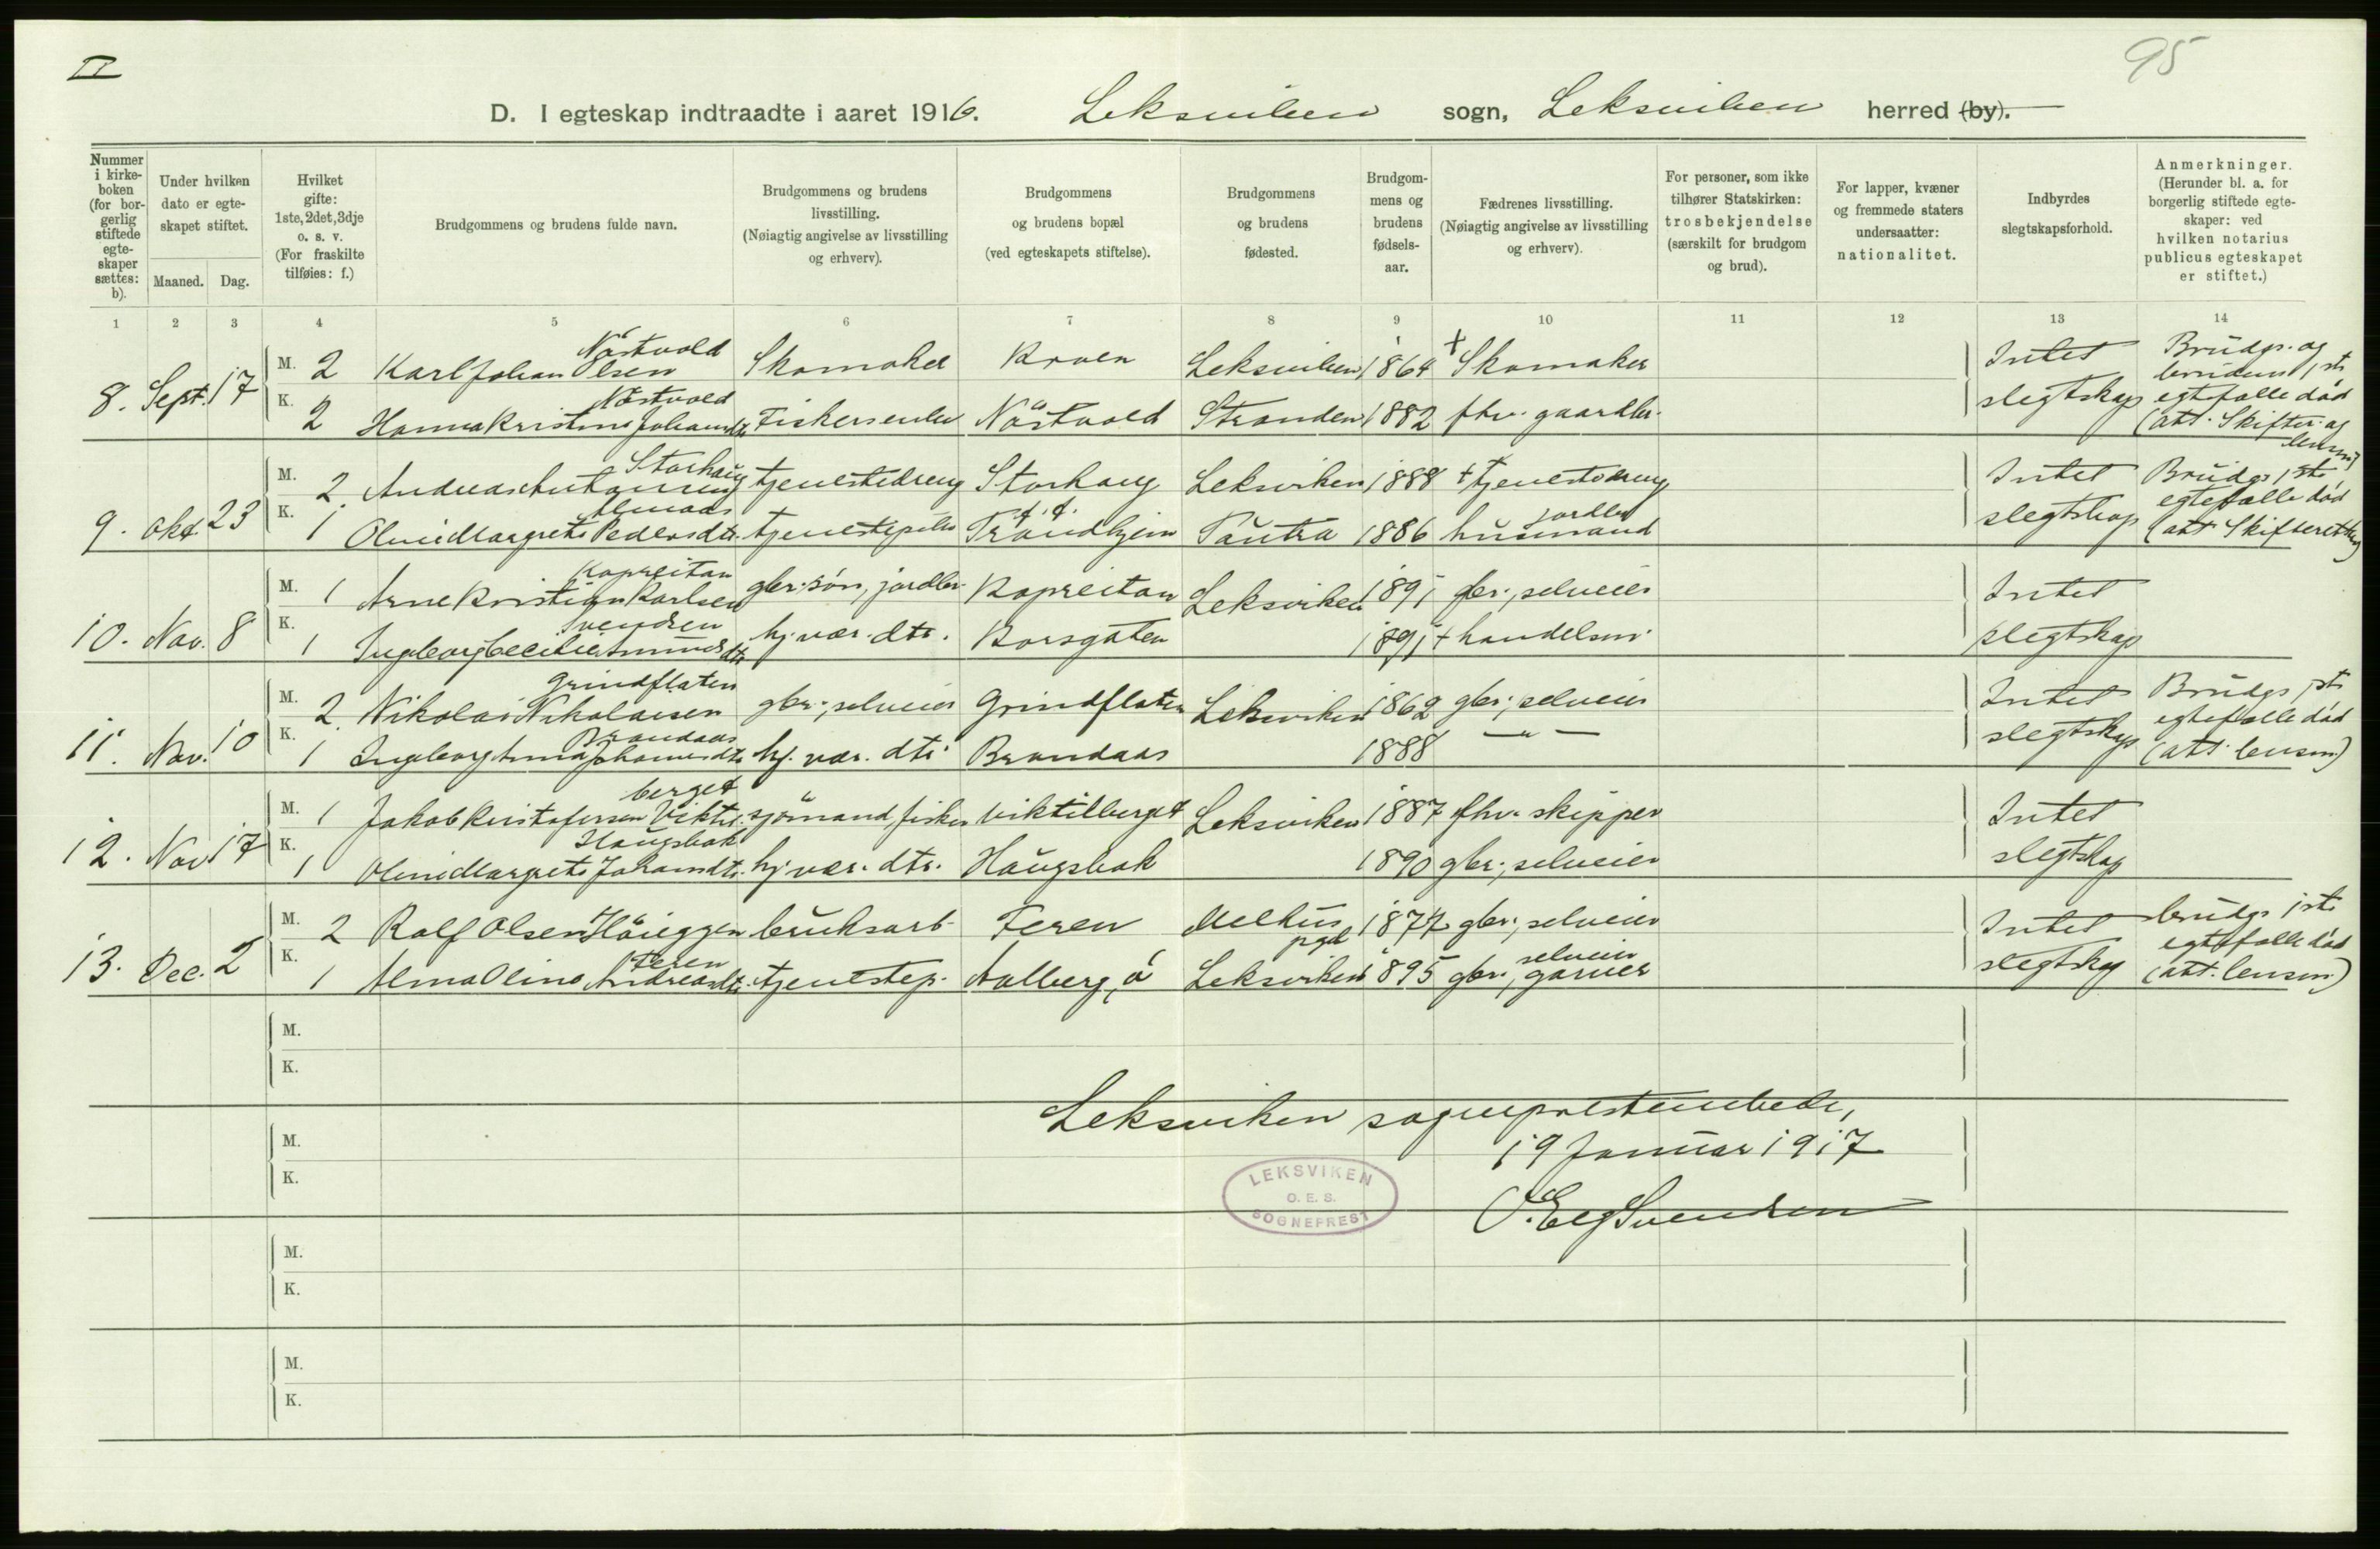 II
95
D. I egteskap indtraadte i aaret 1916. Leksviken sogn, Leksviken herred (by).
Nummer i kirkeboken (for borgerlig stiftede egteskaper sættes: b).
Under hvilken dato er egteskapet stiftet.
Maaned. Dag.
Hvilket gifte: 1ste, 2det, 3dje o. s. v. (For fraskilte tilføies: f.)
Brudgommens og brudens fulde navn.
Brudgommens og brudens livsstilling. (Nøiagtig angivelse av livsstilling og erhverv).
Brudgommens og brudens bopæl (ved egteskapets stiftelse).
Brudgommens og brudens fødested.
Brudgommens og brudens fødselsaar.
Fædrenes livsstilling. (Nøiagtig angivelse av livsstilling og erhverv).
For personer, som ikke tilhører Statskirken: trosbekjendelse (særskilt for brudgom og brud).
For lapper, kvæner og fremmede staters undersaatter: nationalitet.
Indbyrdes slegtskapsforhold.
Anmerkninger. (Herunder bl. a. for borgerlig stiftede egteskaper: ved hvilken notarius publicus egteskapet er stiftet.)
1 2 3 4 5 6 7 8 9 10 11 12 13 14
8. Sept. 17 M. 2 Karl Johan Olsen Nöstvold Skomaker Kroen Leksviken 1864 + Skomaker Intet slegtskap Brudgs. og brudens 1ste egtefælle död (att. Skifter. og lensm)
K. 2 Hanna Kristine Johansdtr Nöstvold Fiskerenke Nöstvold Stranden 1882 fhv. gaardbr.
9. Okt. 23 M. 2 Andreas Antonsen Storhaug tjenestedreng Storhaug Leksviken 1888 + tjenestedreng Intet slegtskap Brudgs 1ste egtefælle död (att Skifteretten)
K. 1 Oline Margrete Pedersdtr. Almaas tjenestepike Trondhjem Tautra 1886 husmand jordbr
10. Nov. 8 M. 1 Arne Kristian Karlsen Kopreitan gbr. sön, jordbr Kopreitan Leksviken 1891 gbr., selveier Intet slegtskap
K. 1 Ingeborg Cecilie Svendsen hj. vær. dtr. Korsgaten 1891 + handelsm.
11. Nov. 10 M. 2 Nikolai Nikolaisen Grindflaten gbr., selveier Grindflaten Leksviken 1862 gbr., selveier Intet slegtskap Brudgs 1ste egtefælle död (att. lensm)
K. 1 Ingeborg Anna Johansdtr Brandaas hj. vær. dtr Brandaas 1888 — " —
12. Nov 17 M. 1 Jakob Kristofersen Viktilberget sjömand, fisker Viktilberget Leksviken 1887 fhv. skipper Intet slegtskap
K. 1 Oline Margrete Johansdtr. Haugsbak hj. vær. dtr. Haugsbak 1890 gbr., selveier
13. Dec. 2 M. 2 Rolf Olsen Höieggen bruksarb. Feren Melhus pgd 1877 gbr., selveier Intet slegtskap brudgs 1ste egtefælle död (att. lensm)
K. 1 Alma Oline Andreasdtr. Feren tjenestep. Aalberg, ö Leksviken 1895 gbr., selveier garver
M.
K.
Leksviken sogneprestembede,
M.
19 Januar 1917
K.
LEKSVIKEN
O. E. S.
SOGNEPREST
O. Eeg Svendsen
M.
K.
M.
K.